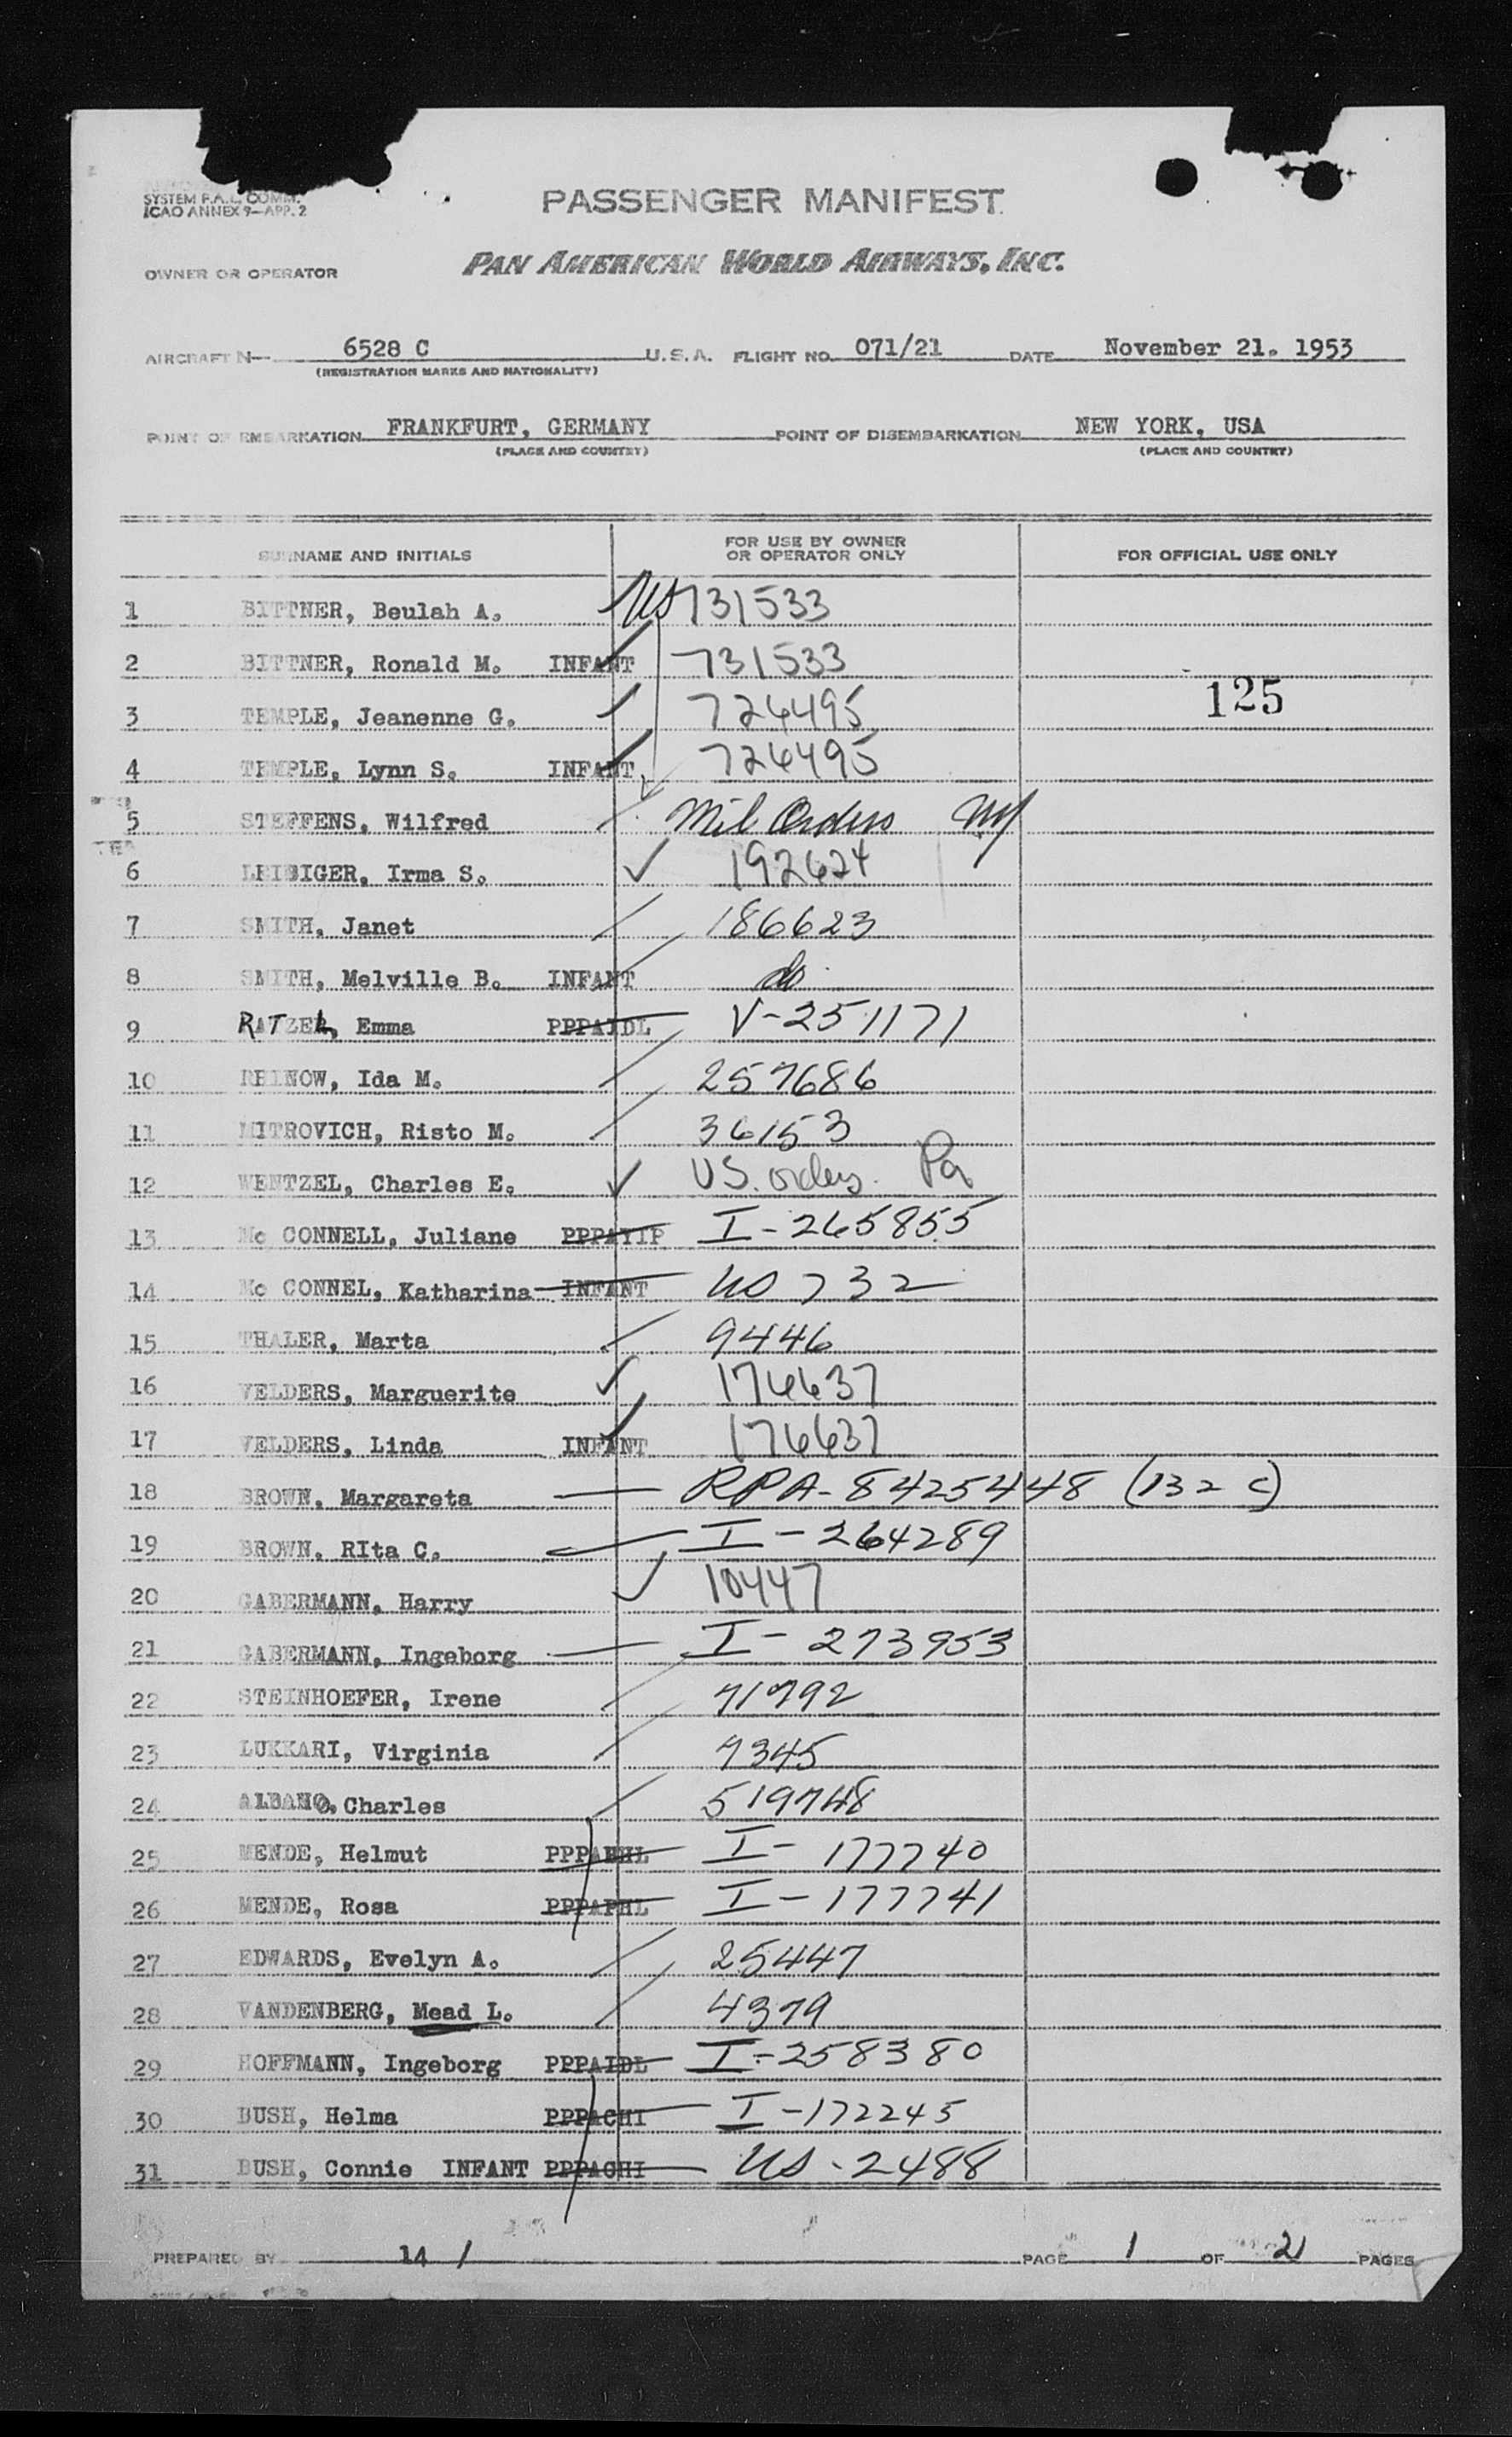 SYSTEM P.A.L. COMM.
ICAO ANNEX 9—APP. 2
PASSENGER MANIFEST
OWNER OR OPERATOR
PAN AMERICAN WORLD AIRWAYS, INC.
AIRCRAFT N— 6528 C U.S.A. FLIGHT NO. 071/21 DATE November 21. 1953
(REGISTRATION MARKS AND NATIONALITY)
POINT OF EMBARKATION FRANKFURT, GERMANY POINT OF DISEMBARKATION NEW YORK, USA
(PLACE AND COUNTRY) (PLACE AND COUNTRY)
SURNAME AND INITIALS FOR USE BY OWNER OR OPERATOR ONLY FOR OFFICIAL USE ONLY
1 BITTNER, Beulah A. US 731533
2 BITTNER, Ronald M. INFANT 731533
125
3 TEMPLE, Jeanenne G. 724495
4 TEMPLE, Lynn S. INFANT 724495
5 STEFFENS, Wilfred Mil Orders NY
6 LEIBIGER, Irma S. 192624
7 SMITH, Janet 186623
8 SMITH, Melville B. INFANT do
9 RATZEL, Emma PPPAIDL V-251171
10 REINOW, Ida M. 257686
11 MITROVICH, Risto M. 36153
12 WENTZEL, Charles E. US. orders. Pa
13 Mc CONNELL, Juliane I-265855
14 Mc CONNEL, Katharina INFANT US 732
15 THALER, Marta 9446
16 VELDERS, Marguerite 176637
17 VELDERS, Linda INFANT 176637
18 BROWN, Margareta RPA-8425448 (132 c)
19 BROWN. RIta C. I-264289
20 GABERMANN, Harry 10447
21 GABERMANN, Ingeborg I-273953
22 STEINHOEFER, Irene 71792
23 LUKKARI, Virginia 7345
24 ALBANO, Charles 519748
25 MENDE, Helmut I-177740
26 MENDE, Rosa I-177741
27 EDWARDS, Evelyn A. 25447
28 VANDENBERG, Mead L. 4379
29 HOFFMANN, Ingeborg PPPAIDL I-258380
30 BUSH, Helma PPPACHI I-172245
31 BUSH, Connie INFANT PPPACHI US-2488
PREPARED BY 14 1 PAGE 1 OF 2 PAGES